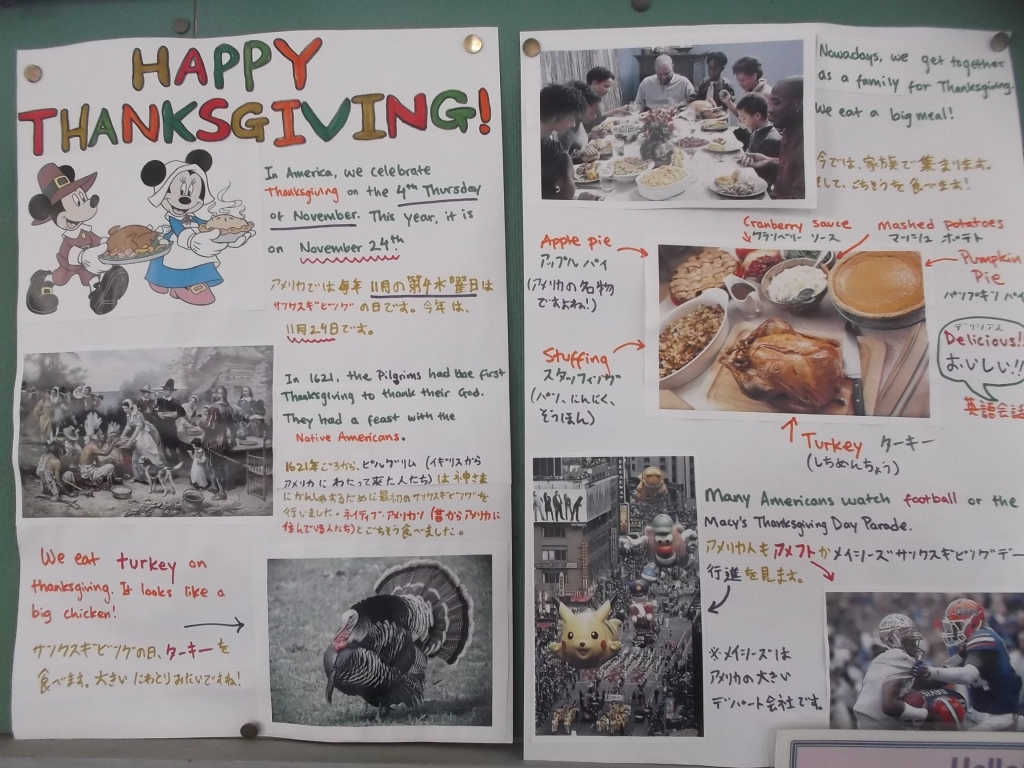 HAPPY
THANKSGIVING!
In America, we celebrate
Thanksgiving on the 4th Thursday
of November. This year, it is
on November 24th
アメリカでは毎年 11月の第4木曜日は
サンクスギビングの日です。今年は、
11月24日です。
In 1621, the Pilgrims had the first
Thanksgiving to thank their God.
They had a feast with the
Native Americans.
1621年ごろから、ピルグリム (イギリスから
アメリカに わたって来た人たち) は神さま
にかんしゃするために最初のサンクスギビングを
行いました。ネイティブ・アメリカン (昔からアメリカに
住んでいる人たち)とごちそう食べました。
We eat turkey on
thanksgiving. It looks like a
big chicken!
サンクスギビングの日、ターキーを
食べます。大きい にわとりみたいですね!
Nowadays, we get together
as a family for Thanksgiving.
We eat a big meal!
今では、家族で集まります。
そして、ごちそうを食べます!
Cranberry sauce
クランベリー ソース
Mashed potatoes
マッシュ ポテト
Apple pie
アップル パイ
(アメリカの名物
ですよね!)
Pumpkin
Pie
パンプキン パイ
デリシアス
Delicious!!
おいしい!!
英語会話
Stuffing
スタッフィング
(パン、にんにく、
そうほん)
Turkey ターキー
(しちめんちょう)
Many Americans watch football or the
Macy's Thanksgiving Day Parade.
アメリカ人も アメフトか メイシーズサンクスギビングデー
行進を見ます。
※メイシーズは
アメリカの大きい
デパート会社です。
Hello